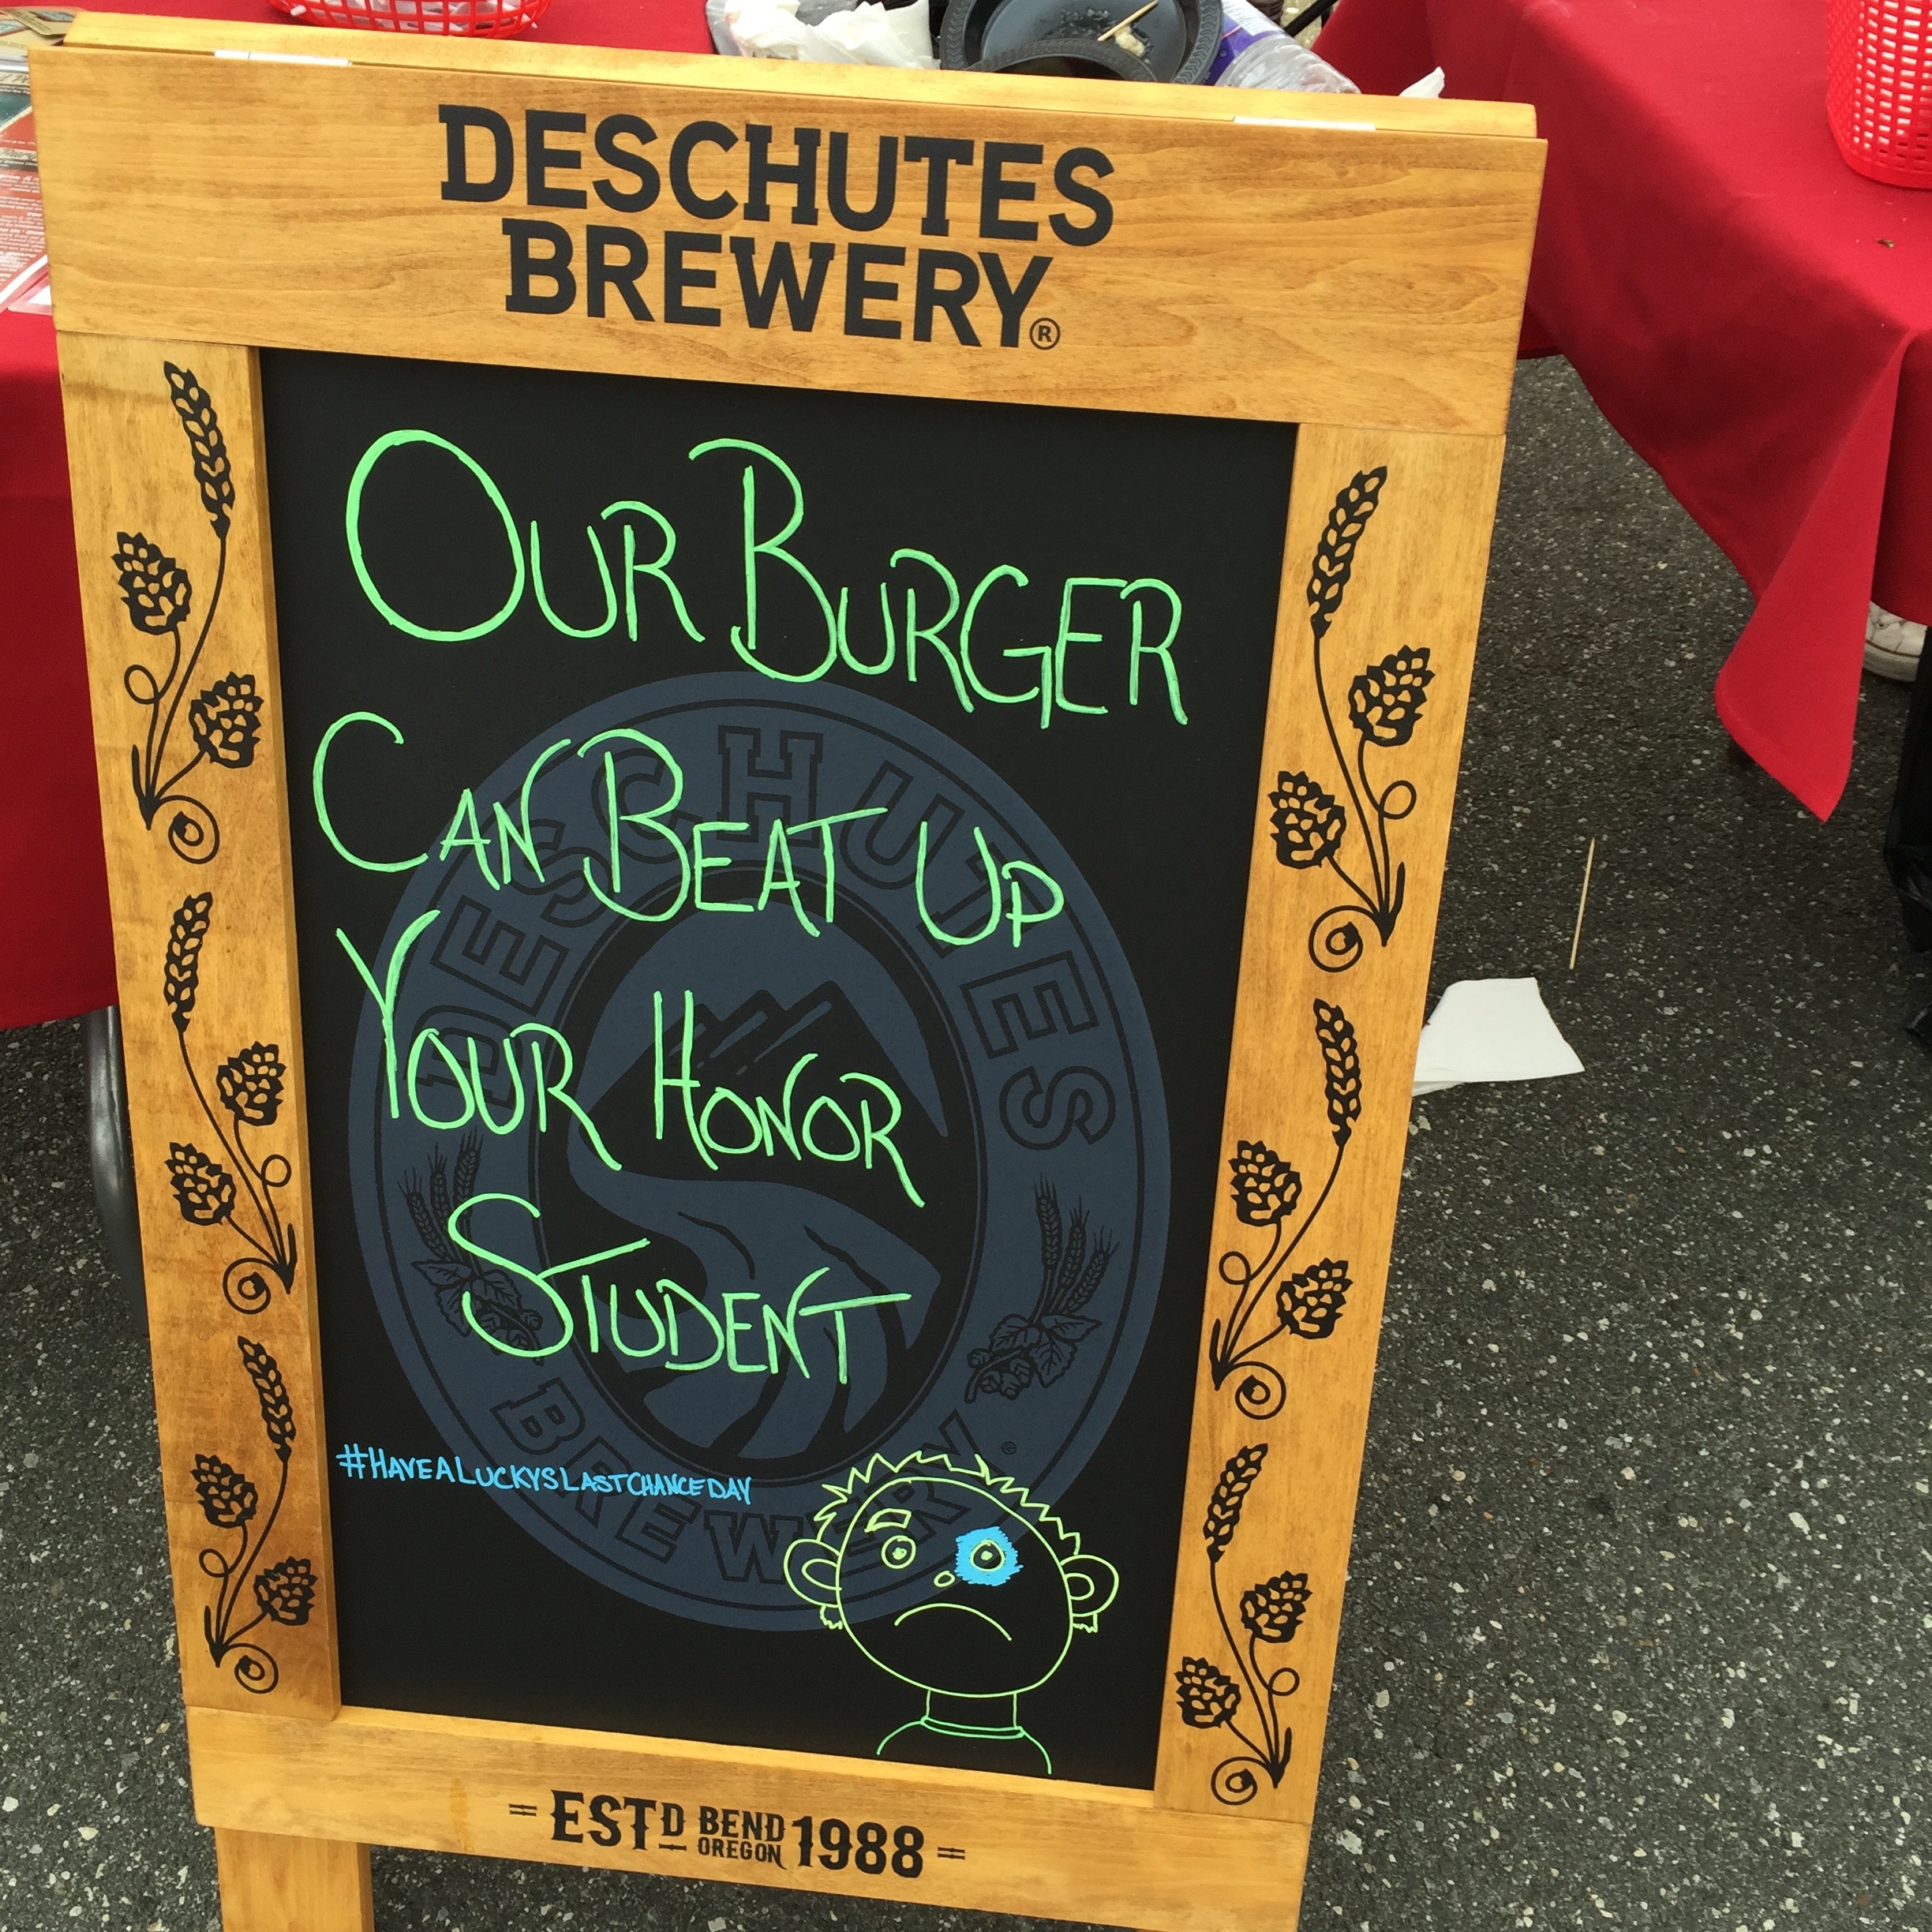 DESCHUTES
BREWERY®
OUR BURGER
CAN BEAT UP
YOUR HONOR
STUDENT
#HAVEALUCKYSLASTCHANCEDAY
DESCHUTES
BREWERY®
ESTD BEND OREGON 1988